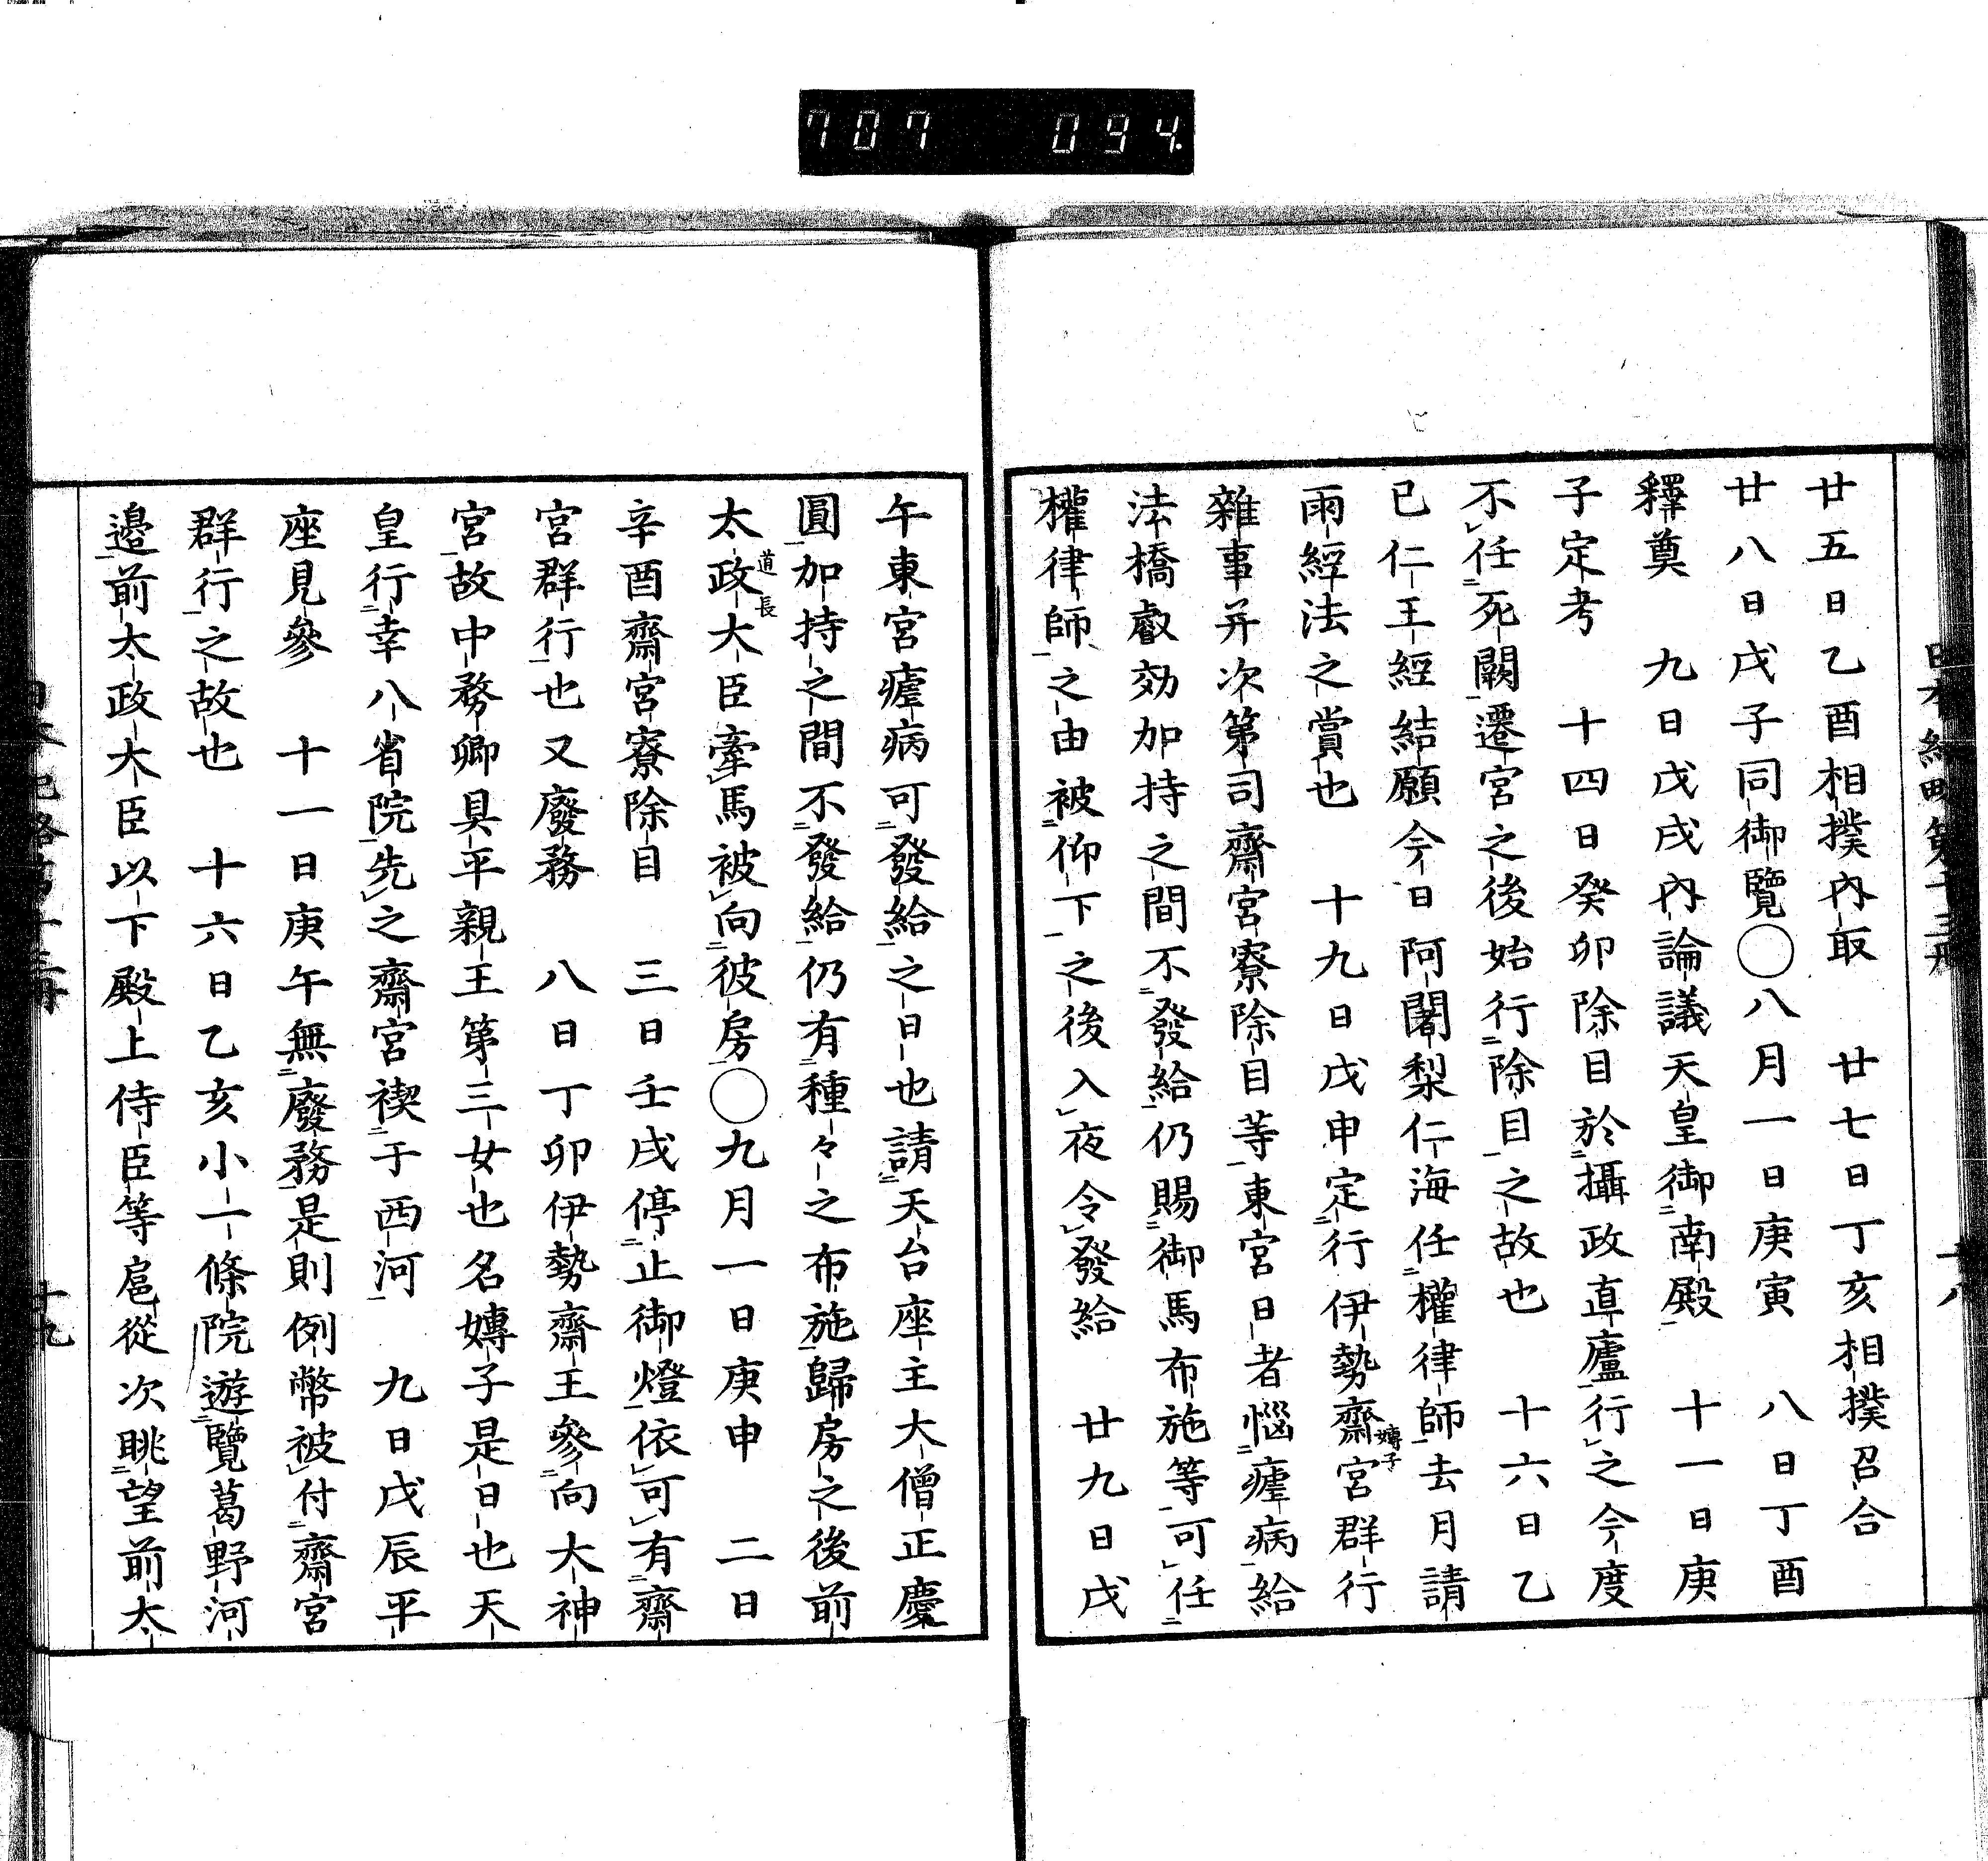 707 094
日本紀略第十三冊 十八
廿五日乙酉相撲內取 廿七日丁亥相撲召合
廿八日戊子同御覽〇八月一日庚寅 八日丁酉
釋奠 九日戊戌內論議天皇御南殿 十一日庚
子定考 十四日癸卯除目於攝政直廬行之今度
不任死闕遷宮之後始行除目之故也 十六日乙
巳仁王經結願今日阿闍梨仁海任權律師去月請
雨經法之賞也 十九日戊申定行伊勢齋嫥子宮群行
雜事并次第司齋宮寮除目等東宮日者惱瘧病給
法橋叡効加持之間不發給仍賜御馬布施等可任
權律師之由被仰下之後入夜令發給 廿九日戊
午東宮瘧病可發給之日也請天台座主大僧正慶
圓加持之間不發給仍有種々之布施歸房之後前
太政道長大臣牽馬被向彼房〇九月一日庚申 二日
辛酉齋宮寮除目 三日壬戌停止御燈依可有齋
宮群行也又廢務 八日丁卯伊勢齋王參向大神
宮故中務卿具平親王第三女也名嫥子是日也天
皇行幸八省院先之齋宮禊于西河 九日戊辰平
座見參 十一日庚午無廢務是則例幣被付齋宮
群行之故也 十六日乙亥小一條院遊覽葛野河
邊前太政大臣以下殿上侍臣等扈從次眺望前太
日本紀略第十三冊 十九